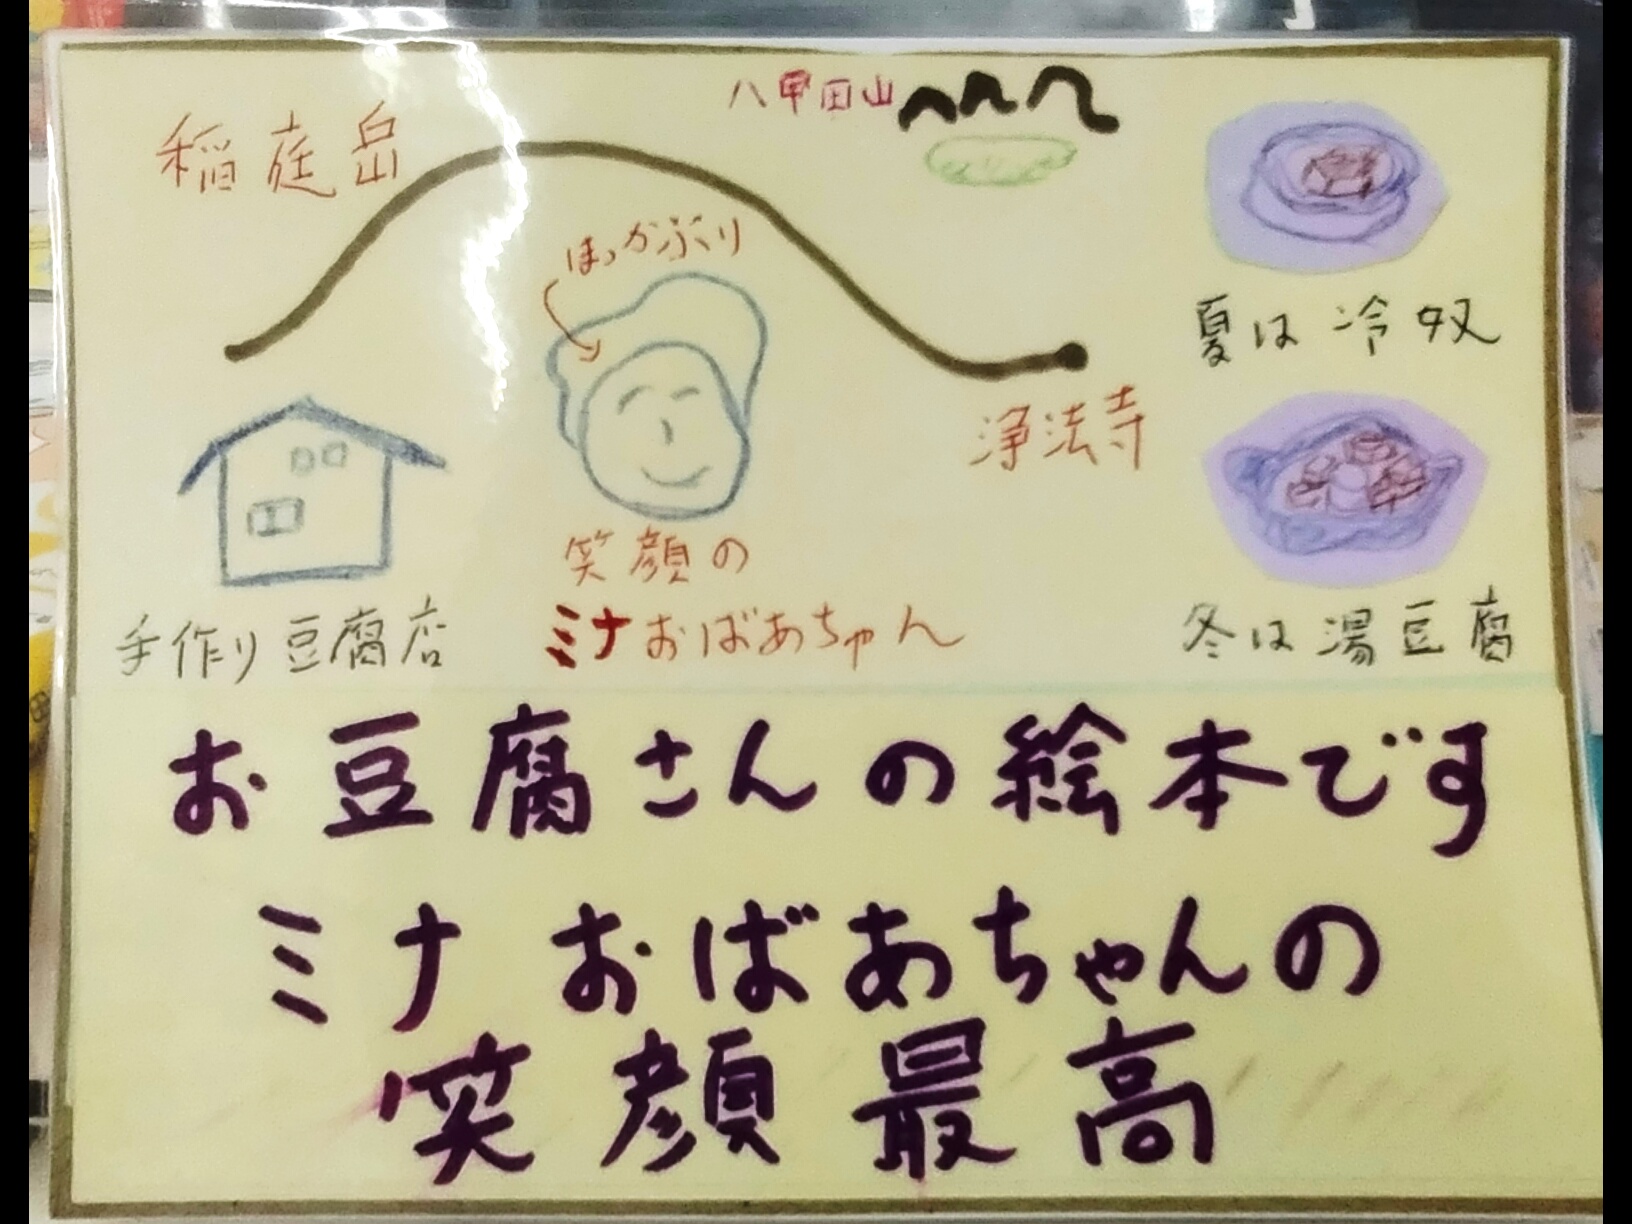 八甲田山
稲庭岳
ほっかぶり
夏は冷奴
浄法寺
笑顔の
ミナおばあちゃん
手作り豆腐店
冬は湯豆腐
お豆腐さんの絵本です
ミナおばあちゃんの
笑顔最高